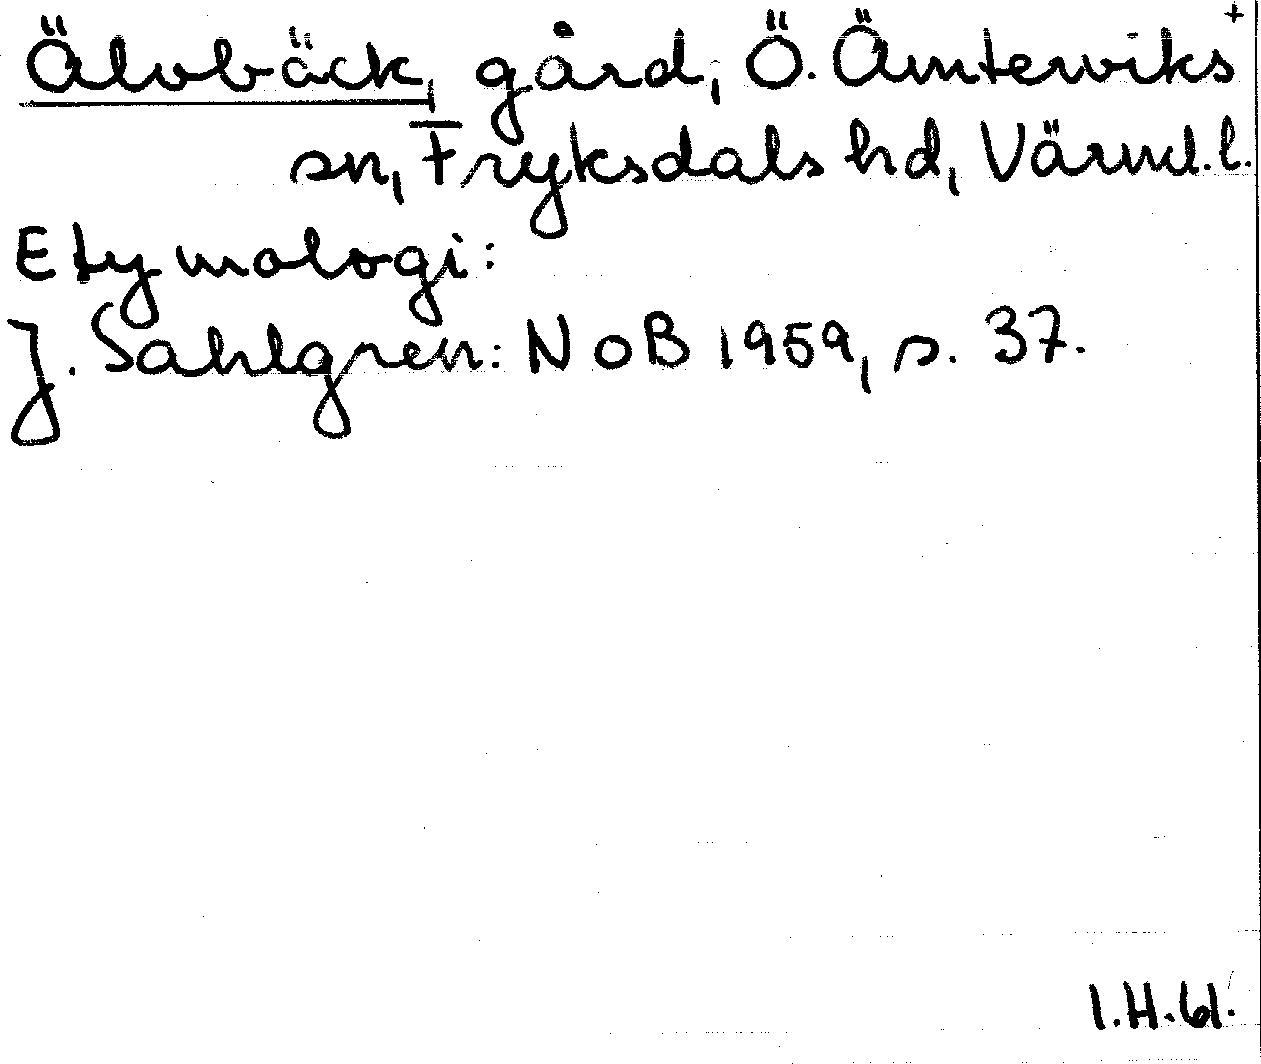 Älvbäck, gård, Ö. Ämterviks
sn, Fryksdals hd, Värml. l.
Etymologi:
J. Sahlgren: NoB 1959, s. 37.
I.H. 61.